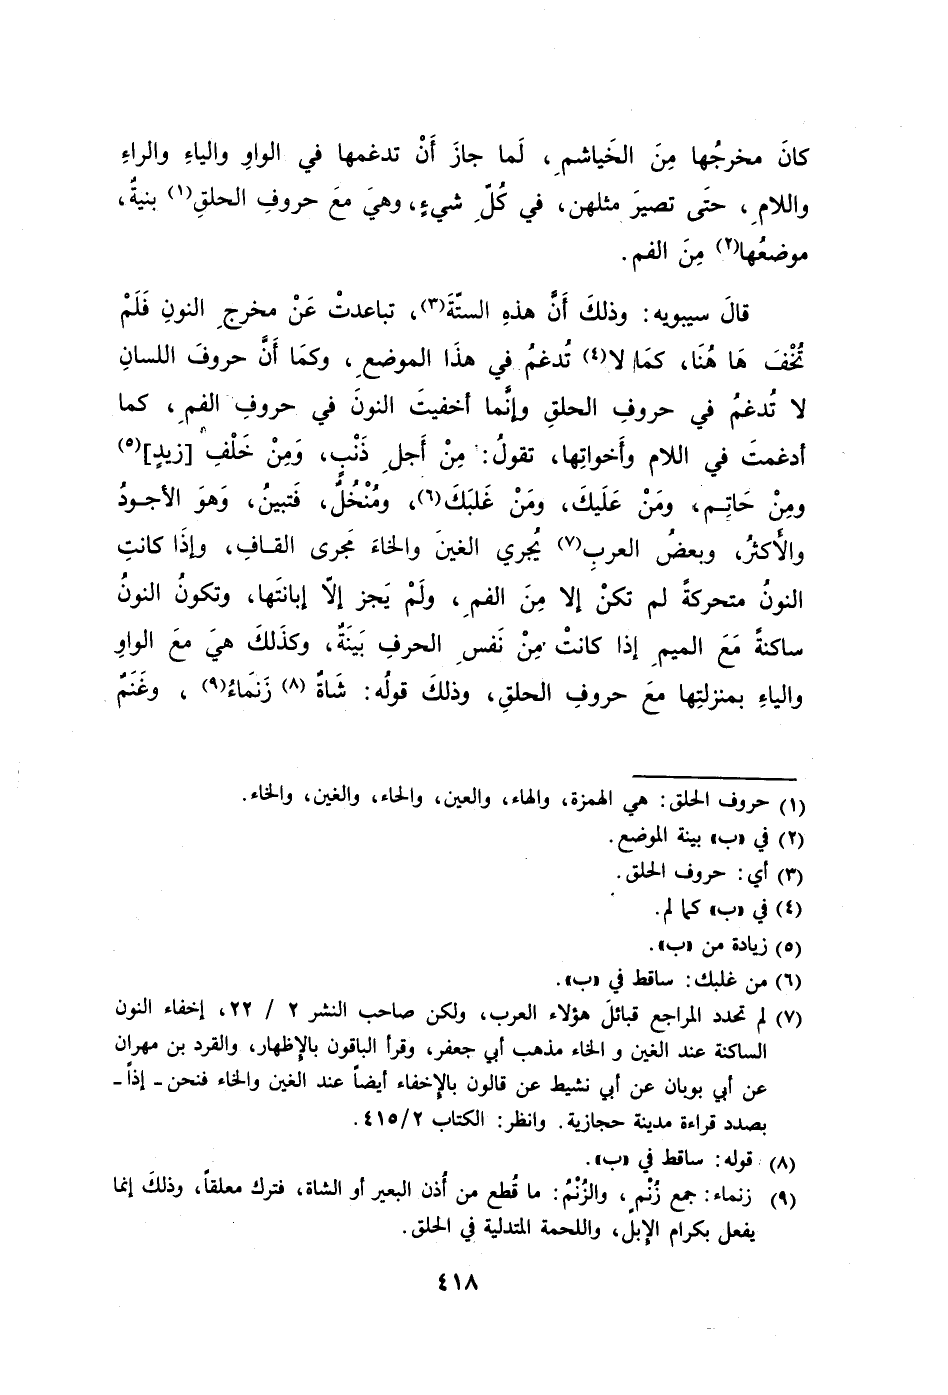 كانَ مخرجُها مِنَ الخَياشمِ، لَما جازَ أَنْ تدغمها في الواوِ والياءِ والراءِ
واللامِ، حتَى تصيرَ مثلهن، في كُلِّ شيءٍ، وهيَ معَ حروفِ الحلقِ(١) بنيةٌ،
موضعُها(٢) مِنَ الفم.
قالَ سيبويه: وذلكَ أَنَّ هذهِ الستّةَ(٣)، تباعدتْ عَنْ مخرجِ النونِ فَلَمْ
تُخْفَ هَا هُنَا، كمَا لا(٤) تُدغمُ في هذَا الموضعِ، وكمَا أَنَّ حروفَ اللسانِ
لا تُدغمُ في حروفِ الحلقِ وإنَّما أخفيتَ النونَ في حروفِ الفمِ، كما
أدغمتَ في اللام وأَخواتِها، تقولُ: مِنْ أَجلِ ذَنْبٍ، وَمِنْ خَلْفِ [زيدٍ](٥)
ومِنْ حَاتِمٍ، ومَنْ عَلَيكَ، ومَنْ غَلبَكَ(٦)، ومُنْخُلٌ، فَتبينُ، وَهوَ الأجودُ
والأَكثرُ، وبعضُ العربِ(٧) يُجري الغينَ والخاءَ مَجرى القافِ، وإذَا كانتِ
النونُ متحركةً لم تكنْ إلا مِنَ الفمِ، ولَمْ يَجز إلّا إبانتَها، وتكونُ النونُ
ساكنةً مَعَ الميمِ إذا كانتْ مِنْ نَفسِ الحرفِ بَينَةٌ، وكذَلكَ هيَ معَ الواوِ
والياءِ بمنزلتِها معَ حروفِ الحلقِ، وذلكَ قولُه: شَاةٌ (٨) زَنمَاءُ(٩)، وغَنَمٌ
(١) حروف الحلق: هي الهمزة، والهاء، والعين، والحاء، والغين، والخاء.
(٢) في «ب» بينة الموضع.
(٣) أي: حروف الحلق.
(٤) في «ب» كما لم.
(٥) زيادة من «ب».
(٦) من غلبك: ساقط في «ب».
(٧) لم تحدد المراجع قبائلَ هؤلاء العرب، ولكن صاحب النشر ٢ / ٢٢، إخفاء النون
الساكنة عند الغين و الخاء مذهب أبي جعفر، وقرأ الباقون بالإظهار، والقرد بن مهران
عن أبي بويان عن أبي نشيط عن قالون بالإخفاء أيضاً عند الغين والخاء فنحن - إذاً -
بصدد قراءة مدينة حجازية. وانظر: الكتاب ٤١٥/٢.
(٨) قوله: ساقط في «ب».
(٩) زنماء: جمع زُنْمٍ، والزُنْمُ: ما قُطع من أُذن البعير أو الشاة، فترك معلقاً، وذلكَ إنما
يفعل بكرام الإبل، واللحمة المتدلية في الحلق.
٤١٨